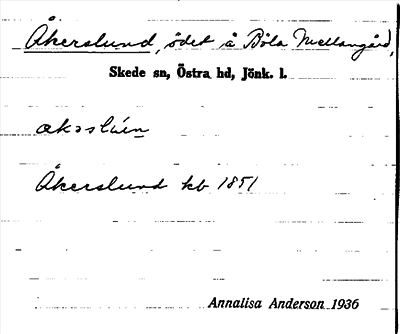 Åkerslund, ödet å Böla Mellangård,
Skede sn, Östra hd, Jönk. l.
Åkerslund kb 1851
Annalisa Anderson 1936